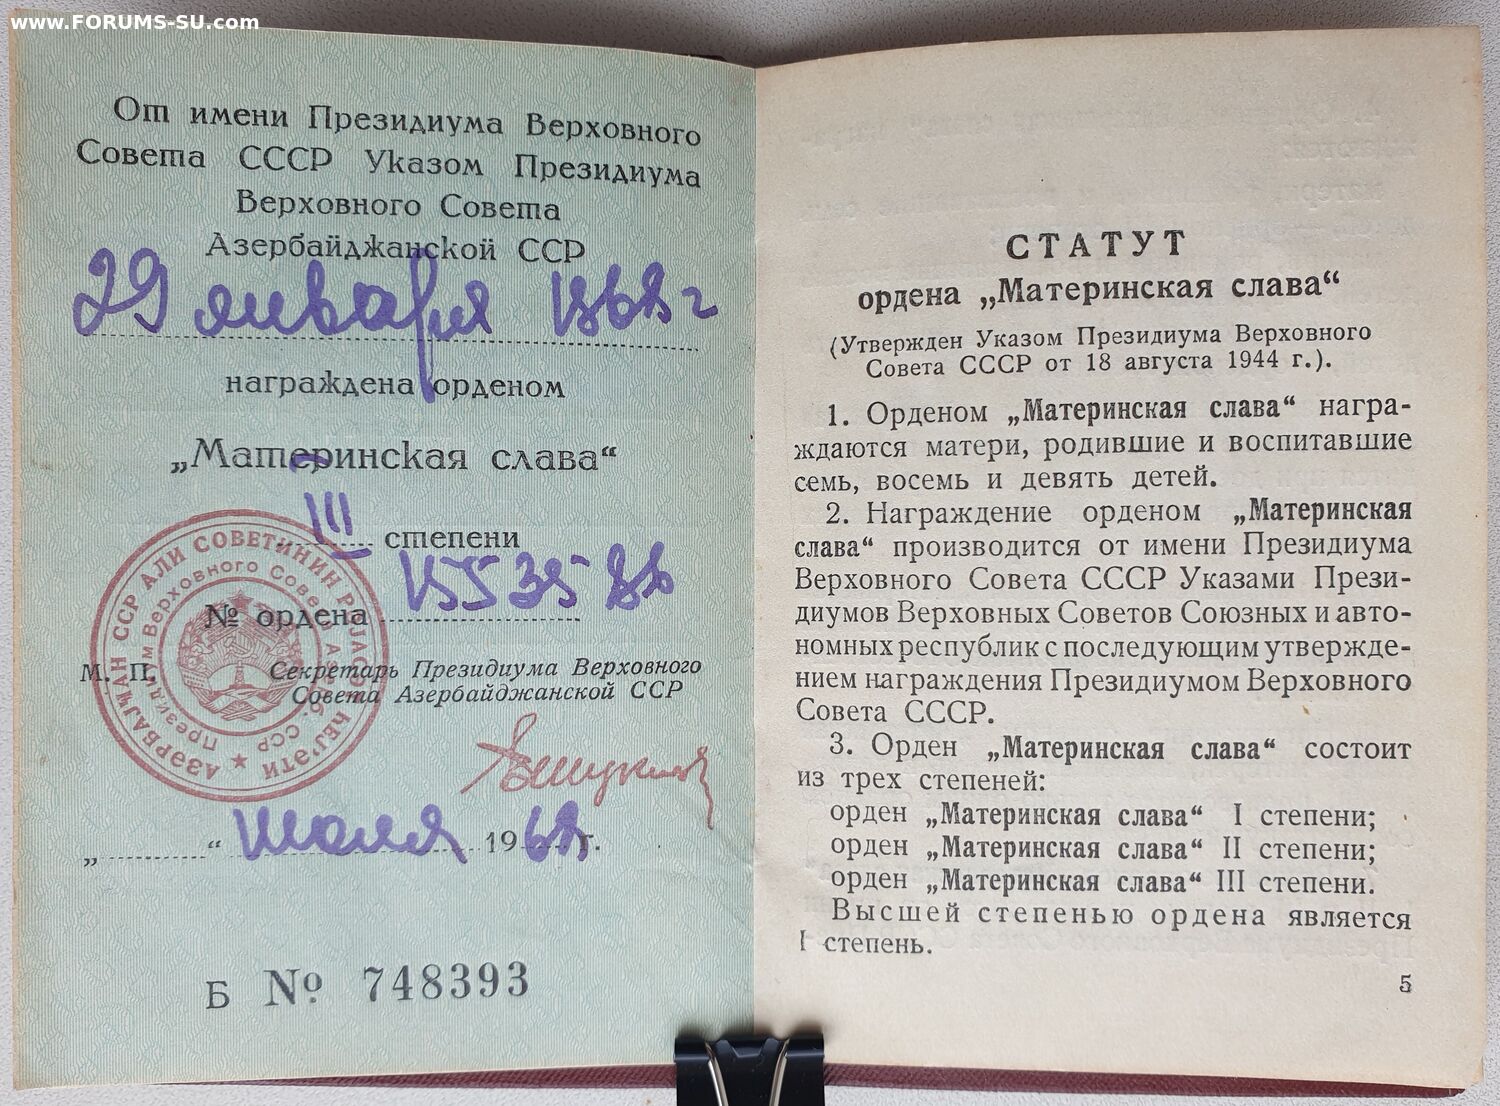 www.FORUMS-SU.com
От имени Президиума Верховного
Совета СССР Указом Президиума
Верховного Совета
Азербайджанской ССР
29 января 1968 г
награждена орденом
„Материнская слава“
III степени
№ ордена
М. П. Секретарь Президиума Верховного
Совета Азербайджанской ССР
АЗӘРБАЈҸАН ССР АЛИ СОВЕТИНИН РӘЈАСӘТ ҺЕЈ'ӘТИ
Президиум Верховного Совета Азерб. ССР
„ “ июля 1968 г.
Б № 748393
СТАТУТ
ордена „Материнская слава“
(Утвержден Указом Президиума Верховного
Совета СССР от 18 августа 1944 г.).
1. Орденом „Материнская слава“ награ-
ждаются матери, родившие и воспитавшие
семь, восемь и девять детей.
2. Награждение орденом „Материнская
слава“ производится от имени Президиума
Верховного Совета СССР Указами Прези-
диумов Верховных Советов Союзных и авто-
номных республик с последующим утвержде-
нием награждения Президиумом Верховного
Совета СССР.
3. Орден „Материнская слава“ состоит
из трех степеней:
орден „Материнская слава“ I степени;
орден „Материнская слава“ II степени;
орден „Материнская слава“ III степени.
Высшей степенью ордена является
I степень.
5